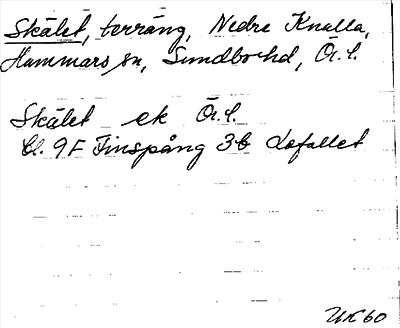 Skålet, terräng, Nedre Knalla,
Hammars sn, Sundbo hd, Ör. l.
Skålet ek Ör. l.
bl. 9F Finspång 3b Lofallet
UK60